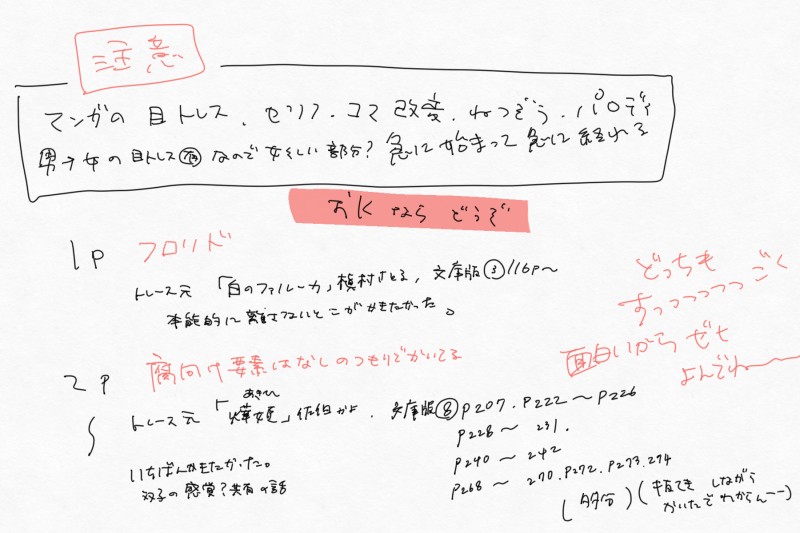 注意
マンガの目トレス、セリフ・コマ改変、ねつぞう・パロディ
男→女の目トレス有なので女々しい部分?急に始まって急に終わる
OKならどうぞ
1P フロリド
トレース元「白のファルーカ」槇村さとる、文庫版③116p〜
本能的に離さないとこがかきたかった。
どっちも
すっっっっっっごく
面白いからぜひ
よんでね〜
2P 腐向け要素はなしのつもりでかいてる
〜
あきひめ
トレース元「輝夜姫」 文庫版⑧P207.P222〜P226
P228〜231.
P240〜242
P268〜270.P272.P273.274
いちばんかきたかった。
双子の感覚?共有の話
(多分)(しながら
かいたでわからん〜)